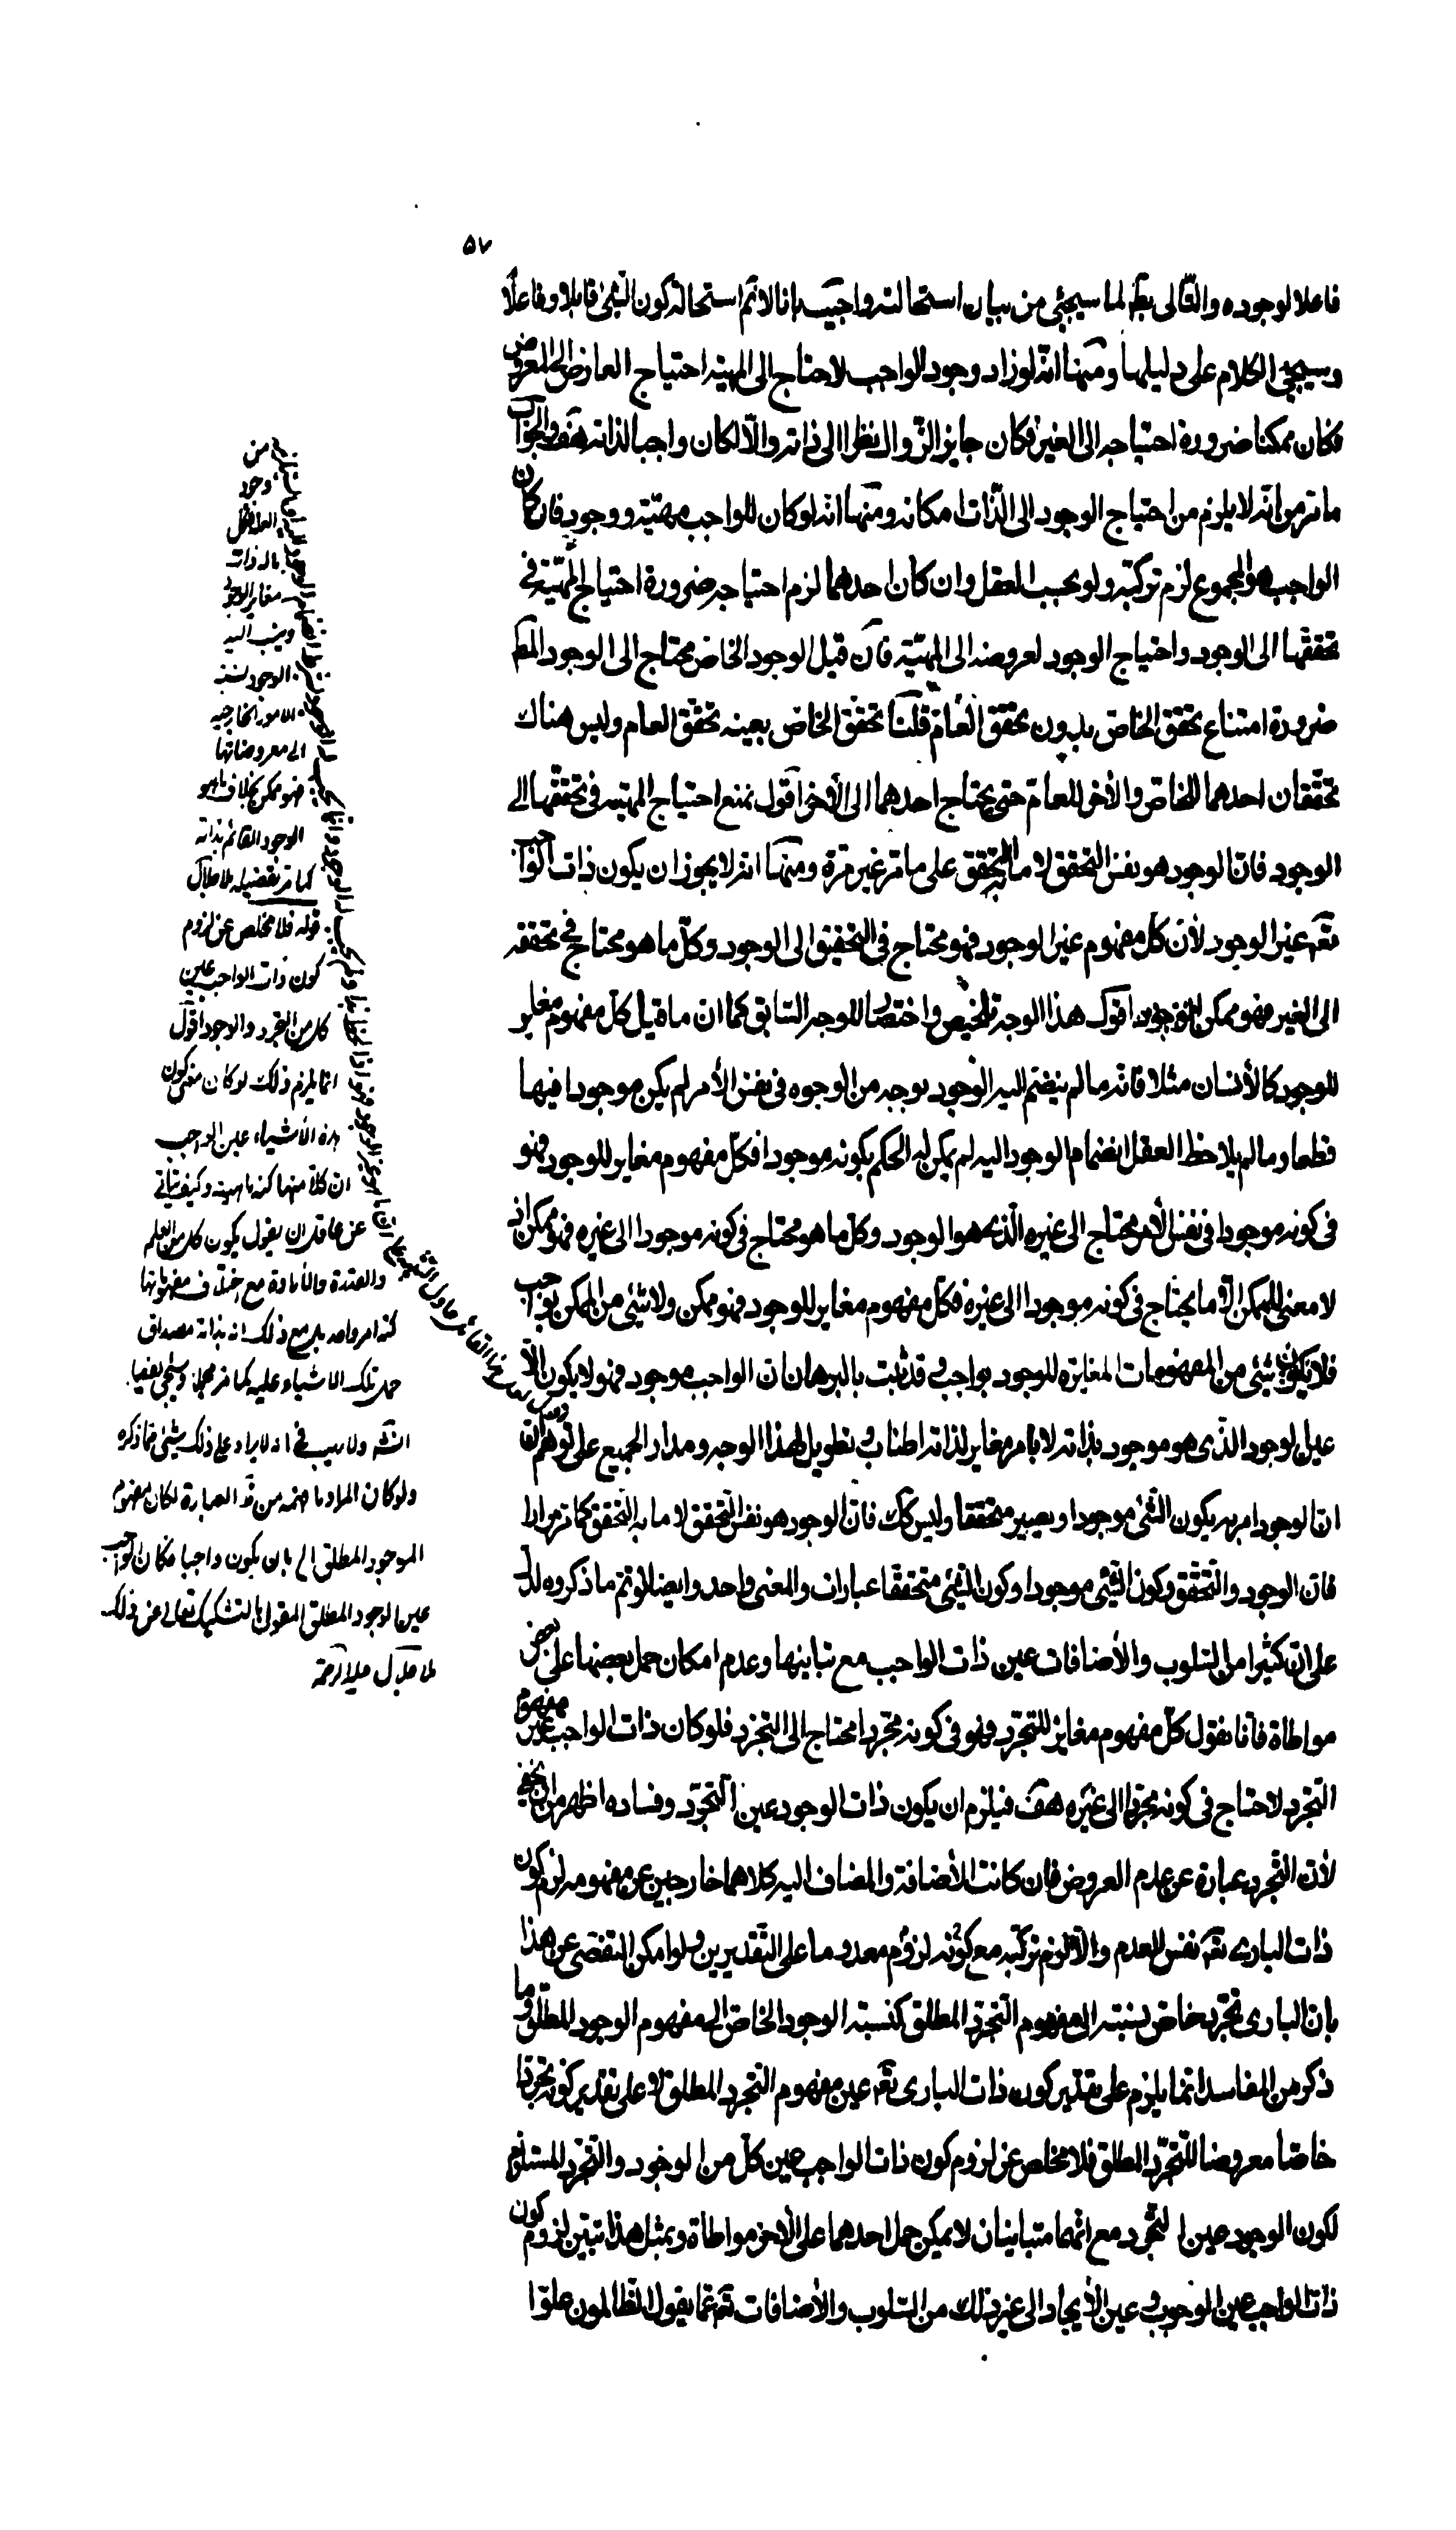 ٥٧
فاعلا لوجوده والتالى بط لما سيجئ من بيان استحالته واجيب بانا لا نم استحالة كون الشئ قابلا وفاعلا
وسيجئ الكلام على دليلها ومنها انه لو زاد وجود الواجب لاحتاج الى المهية احتياج العارض الى المعروض
فكان ممكنا ضرورة احتياجه الى الغير فكان جايز الزوال نظرا الى ذاته والا لكان واجبا لذاته هف والجواب
ما مر من انه لا يلزم من احتياج الوجود الى الذات امكانه ومنها انه لو كان للواجب مهية ووجود فان كان
الواجب هو المجموع لزم تركبه ولو بحسب العقل وان كان احدهما لزم احتياجه ضرورة احتياج المهية فى
تحققها الى الوجود واحتياج الوجود لعروضه الى المهية فان قيل الوجود الخاص محتاج الى الوجود المط
ضرورة امتناع تحقق الخاص بدون تحقق العام قلنا تحقق الخاص بعينه تحقق العام وليس هناك
تحققان احدهما للخاص والأخر للعام حتى يحتاج احدهما الى الأخر اقول نمنع احتياج المهية فى تحققها الى
الوجود فان الوجود هو نفس التحقق لا ما به التحقق على ما مر غير مرة ومنها انه لا يجوز ان يكون ذات الواجب
تعه غير الوجود لأن كل مفهوم غير الوجود فهو محتاج فى التحقيق الى الوجود وكل ما هو محتاج فى تحققه
الى الغير فهو ممكن اقول هذا الوجه تلخيص واختصار للوجه السابق كما ان ما قيل كل مفهوم مغاير
للوجود كالأنسان مثلا فانه ما لم ينضم اليه الوجود بوجه من الوجوه فى نفس الأمر لم يكن موجودا فيها
قطعا وما لم يلاحظ العقل انضمام الوجود اليه لم يمكن له الحكم بكونه موجودا فكل مفهوم مغاير للوجود فهو
فى كونه موجودا فى نفس الأمر محتاج الى غيره الذى هو الوجود وكل ما هو محتاج فى كونه موجودا الى غيره فهو ممكن اذ
لا معنى للممكن الا ما يحتاج فى كونه موجودا الى غيره فكل مفهوم مغاير للوجود فهو ممكن ولا شئ من الممكن بواجب
فلا يكون شئ من المفهومات المغايره للوجود بواجب وقد ثبت بالبرهان ان الواجب موجود فهو لا يكون الا
عين الوجود الذى هو موجود بذاته لا بامر مغاير لذاته اطناب وتطويل لهذا الوجه ومدار الجميع على توهم
ان الوجود امر به يكون الشئ موجودا ويصير متحققا وليس كك فان الوجود هو نفس التحقق لا ما به التحقق كما مر مرارا
فان الوجود والتحقق وكون الشئ موجودا وكون الشئ متحققا عبارات والمعنى واحد وايضا لو تم ما ذكروه لدل
على ان كثيرا من السلوب والأضافات عين ذات الواجب مع تباينها وعدم امكان حمل بعضها على بعض
مواطاة فانا نقول كل مفهوم مغاير للتجرد فهو فى كونه مجردا محتاج الى التجرد فلو كان ذات الواجب غير مفهوم
التجرد لاحتاج فى كونه مجردا الى غيره هف فيلزم ان يكون ذات الوجود عين التجرد وفساده اظهر من ان يخفى
لأن التجرد عبارة عن عدم العروض فان كانت الأضافة والمضاف اليه كلاهما خارجين عن مفهومه لزم كون
ذات البارى تعه نفس العدم والا لزم تركبه مع كونه معدوما على التقديرين ولو امكن التفصى عن هذا
بان البارى تجرد خاص نسبته الى مفهوم التجرد المطلق كنسبة الوجود الخاص الى مفهوم الوجود المطلق وما
ذكر من المفاسد انما يلزم على تقدير كون ذات البارى تعه عين مفهوم التجرد المطلق لا على تقدير كونه تجردا
خاصا معروضا للتجرد المطلق فلا مخلص عن لزوم كون ذات الواجب عين كل من الوجود والتجرد المستلزم
لكون الوجود عين التجرد مع انهما متباينان لا يمكن حمل احدهما على الأخر مواطاة وبمثل هذا تبين لزوم كون
ذات الواجب عين الوجوب وعين الأيجاد الى غير ذلك من السلوب والأضافات تعه عما يقول الظالمون علوا
من
وجود
بالذات
وينسب اليه
الوجود نسبة
الامور الخارجية
الى معروضاتها
فهو ممكن بخلاف ما هو
الوجود القائم بذاته
كما مر تفصيله
قوله فلا مخلص عن لزوم
كون ذات الواجب عين
كل من التجرد والوجود اقول
انما يلزم ذلك لو كان معنى كون
هذه الأشياء عين الواجب
ان كلا منها كنه ماهيته وكيف يتأتى
عن عاقل ان يقول يكون كل من العلم
والقدرة والأرادة مع اختلاف مفهوماتها
كنه امر واحد بل مع ذلك انه بذاته مصداق
حمل تلك الاشياء عليه كما مر مجملا وسيجئ تفصيلا
انشه ولا ريب فى انه لا يراد على ذلك شئ مما ذكره
ولو كان المراد ما فهمه من العبارة لكان مفهوم
الموجود المطلق واجبا فكان الواجب
عين الوجود المطلق المقول بالتشكيك تعالى عن ذلك